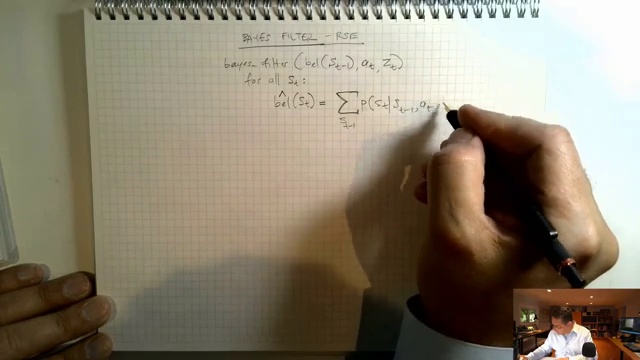 BAYES FILTER - RSE
bayes-filter (bel(s_{t-1}), a_t, z_t)
for all s_t:
b̂el(s_t) = ∑_{s_{t-1}} p(s_t|s_{t-1}, a_t